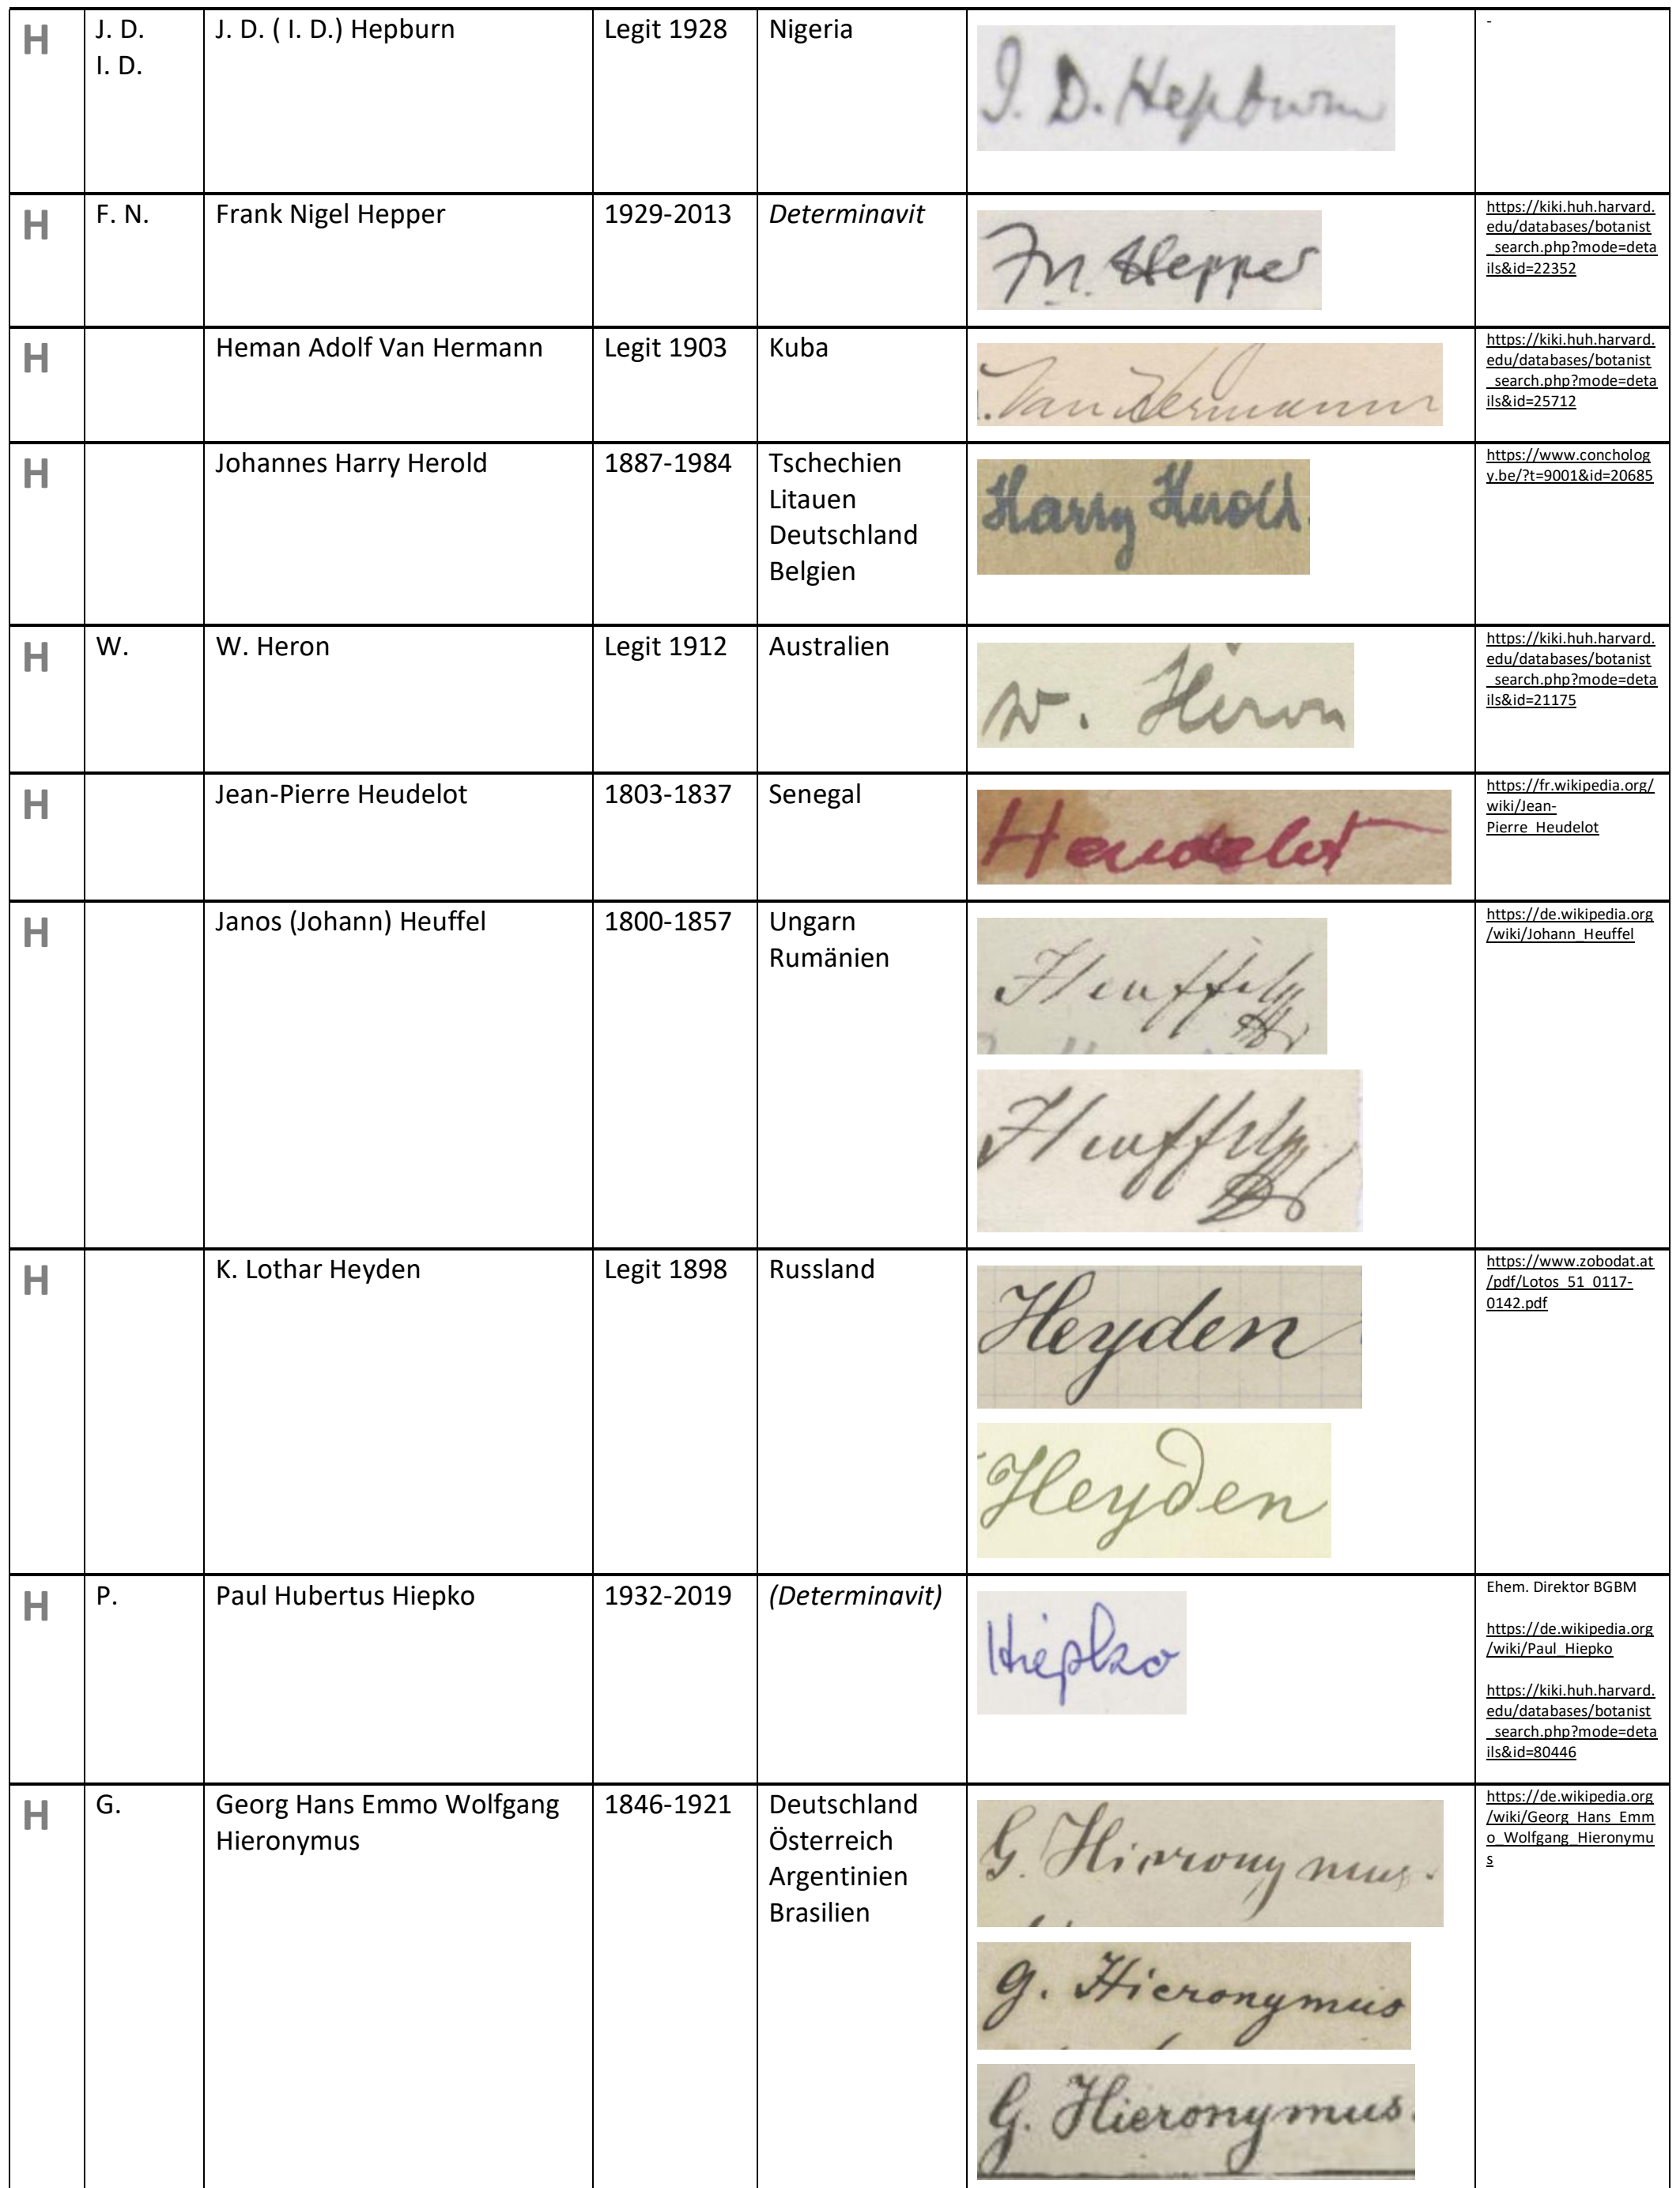 H J. D. J. D. ( I. D.) Hepburn Legit 1928 Nigeria J. D. Hepburn -
I. D.
H F. N. Frank Nigel Hepper 1929-2013 Determinavit FN. Hepper https://kiki.huh.harvard.
edu/databases/botanist
_search.php?mode=deta
ils&id=22352
H Heman Adolf Van Hermann Legit 1903 Kuba . Van Hermann https://kiki.huh.harvard.
edu/databases/botanist
_search.php?mode=deta
ils&id=25712
H Johannes Harry Herold 1887-1984 Tschechien Harry Herold. https://www.concholog
y.be/?t=9001&id=20685
Litauen
Deutschland
Belgien
H W. W. Heron Legit 1912 Australien W. Heron https://kiki.huh.harvard.
edu/databases/botanist
_search.php?mode=deta
ils&id=21175
H Jean-Pierre Heudelot 1803-1837 Senegal Heudelot https://fr.wikipedia.org/
wiki/Jean-
Pierre_Heudelot
H Janos (Johann) Heuffel 1800-1857 Ungarn Heuffel https://de.wikipedia.org
/wiki/Johann_Heuffel
Rumänien
Heuffel
H K. Lothar Heyden Legit 1898 Russland Heyden https://www.zobodat.at
/pdf/Lotos_51_0117-
0142.pdf
Heyden
H P. Paul Hubertus Hiepko 1932-2019 (Determinavit) Hiepko Ehem. Direktor BGBM
https://de.wikipedia.org
/wiki/Paul_Hiepko
https://kiki.huh.harvard.
edu/databases/botanist
_search.php?mode=deta
ils&id=80446
H G. Georg Hans Emmo Wolfgang 1846-1921 Deutschland G. Hieronymus. https://de.wikipedia.org
/wiki/Georg_Hans_Emm
o_Wolfgang_Hieronymu
s
Hieronymus Österreich
Argentinien
Brasilien
G. Hieronymus
G. Hieronymus.